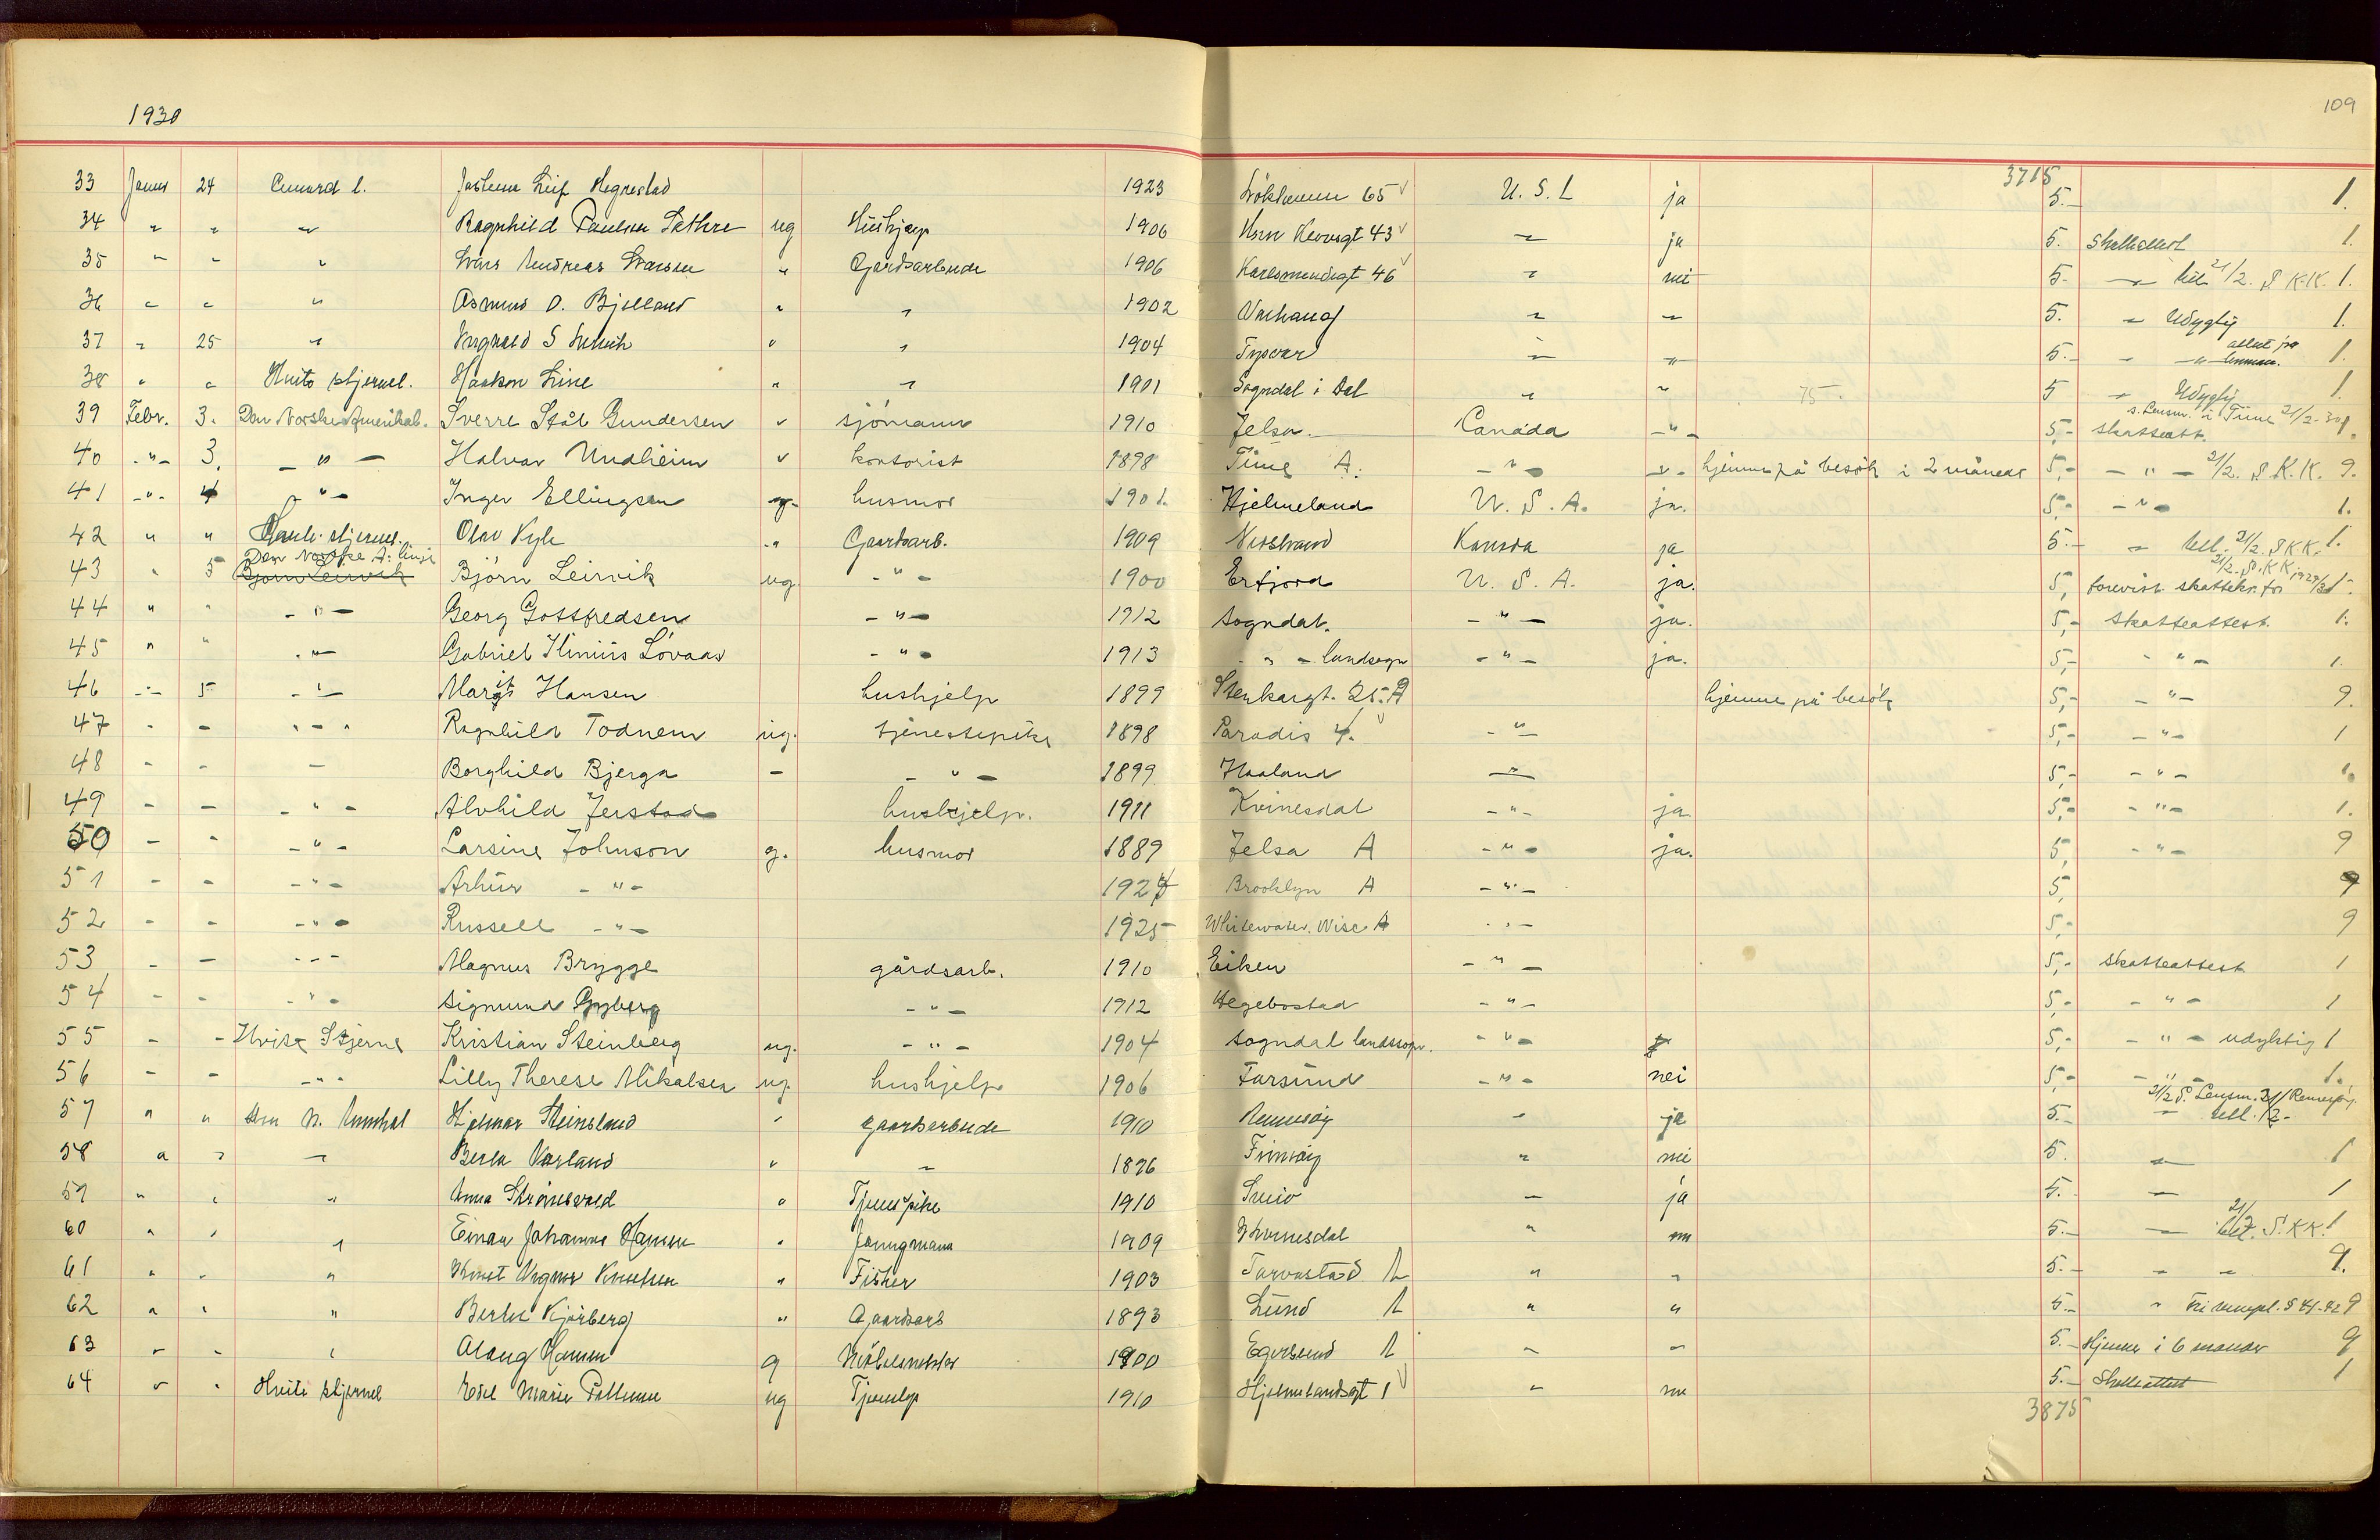 1930
109
3715
33 Januar 24 Cunard l. Leif Hegrestad 1923 65 U.S.A ja 5.- 1.
34 " " " Ragnhild Paulsen Sæthre ug Hushjælp 1906 43 " ja 5. Skatteattest 1.
35 " " " Lars Andreas Larsen " Gardsarbeide 1906 46 " nei 5.- " 21/2. S.K.K. 1.
36 " " " Asmund O. Bjelland " " 1902 Varhaug " " 5. " Udygtig 1.
37 " 25 " Ingvald S " " 1904 Tysvær " " 5.- " " attest fra lensman. 1.
38 " " Hvite stjernel. Haakon Line " " 1901 Sogndal i Dal " " 75- 5 " Udygtig 1.
39 Febr. 3. Den Norske Amerikal. Sverre Ståle Gundersen " sjömann 1910 Jelsa. Canada -"- 5,- s. Lensm. i Time 21/2-30 skatteatt.
40 -"- 3. -"- Halvar Undheim " kontorist 1898 Time A. -"- -"- hjemme på besök i 2 måneder 5,- -"- 21/2. S.K.K. 9.
41 -"- 4 -"- Inger Ellingsen g. husmor 1901. Hjelmeland U.S.A. ja. 5,- -"- 1.
42 " " Hvite stjernel. Olav " Gaardsarb. 1909 Nedstrand Kanada ja 5.- " 21/2. S.K.K. 1.
43 " 5 Den Norske A. linje Bjørn Leirvik Björn Leirvik ug. -"- 1900 Erfjord U.S.A. ja. 5, 21/2. S.K.K. forevist skattekv. for 1929/30 1.
44 " " -"- Georg Gottfredsen -"- 1912 Sogndal. -"- ja. 5,- skatteattest. 1.
45 " " -"- Gabriel Lövaas -"- 1913 -"- landsogn -"- ja. 5,- -"- 1.
46 -"- 5 -"- Margit Hansen hushjelp 1899 Stenkargt. 25.A hjemme på besök 5,- -"- 9.
47 - - -"- Ragnhild Todnem ug. tjenestepike 1898 Paradis 4. -"- 5,- -"- 1
48 - - - Borghild Bjerga - -"- 1899 Haaland -"- 5,- -"- 1.
49 - - -"- Alvhild Jerstad hushjelp. 1911 Kvinesdal -"- ja 5,- -"- 1.
50 - - -"- Larsine Johnson g. husmor 1889 Jelsa A -"- ja. 5, -"- 9
51 - - -"- Arhur -"- 1927 Brooklyn A -"- 5, 9
52 - - -"- Russell -"- 1925 Whitewater. Wisc A -"- 5,- 9
53 - - -"- Magnus Brygge gårdsarb. 1910 Eiken -"- 5,- skatteattest 1
54 - - -"- Sigmund Gyberg -"- 1912 Hegebostad -"- 5,- -"- 1
55 - - Hvite Stjerne Kristian Steinberg ug. -"- 1904 Sogndal landsogn. -"- 5,- -"- udyktig 1
56 - - -"- Lilly Therese Mikalsen ug. hushjelp 1906 Farsund -"- nei 5,- -"- 1.
57 " " Den N. Hjalmar Steinsland " gaardsarbeide 1910 Rennesöy " ja 5.- " 21/2 S. Lensm. Rennesöy.
58 " " " Berta Varland " " 1896 Finnöy " nei 5. " 1
59 " " " Anna " Tjenestpike 1910 Sveio " ja 5.- " 1
60 " " " Einar Johannes Hansen " Jungmann 1909 Kvinesdal " nei 5.- " 21/2. S.KK. 1
61 " " " Knut Knutsen " Fisker 1903 Torvastad A " " 5.- " " 9.
62 " " " Berta Kjörberg " Gaardsarb 1893 Lund A " " 5.- " 9
63 " " " Hansen g 1900 Egersund A " " 5.- Hjemme i 6 maaneder 9
64 " " Hvite stjernel Edel Marie ug 1910 Hjelmelandsgt 1 " nei 5.- Skatteattest 1
3875